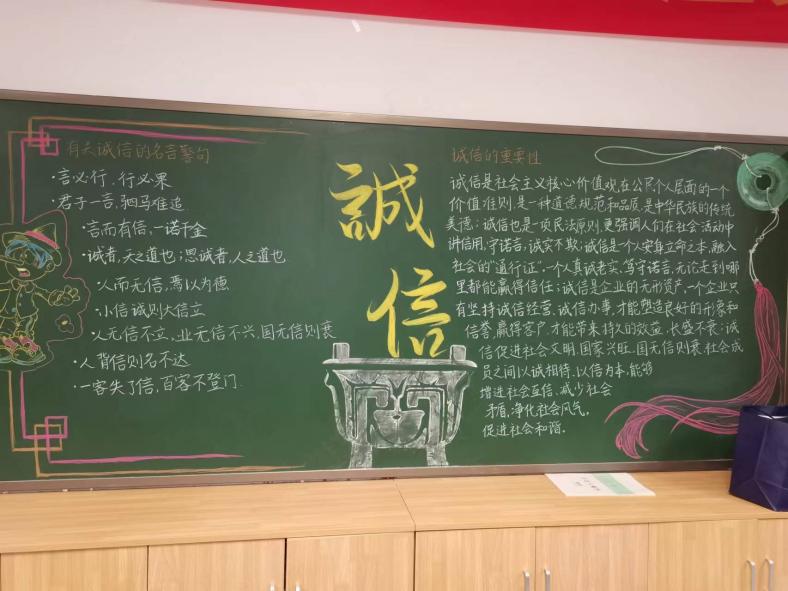 有关诚信的名言警句
·言必行，行必果
·君子一言，驷马难追
·言而有信，一诺千金
·诚者，天之道也；思诚者，人之道也
·人而无信，焉以为德
·小信诚则大信立
·人无信不立，业无信不兴，国无信则衰
·人背信则名不达
·一客失了信，百客不登门.
誠
信
诚信的重要性
诚信是社会主义核心价值观在公民个人层面的一个
价值准则，是一种道德规范和品质，是中华民族的传统
美德；诚信也是一项民法原则，更强调人们在社会活动中
讲信用，守诺言，诚实不欺；诚信是一个人安身立命之本，融入
社会的“通行证”，一个人真诚老实、笃守诺言，无论走到哪
里都能赢得信任；诚信是企业的无形资产，一个企业只
有坚持诚信经营、诚信办事，才能塑造良好的形象和
信誉，赢得客户，才能带来持久的效益，长盛不衰；诚
信促进社会文明、国家兴旺，国无信则衰，社会成
员之间以诚相待、以信为本，能够
增进社会互信、减少社会
矛盾，净化社会风气，
促进社会和谐。